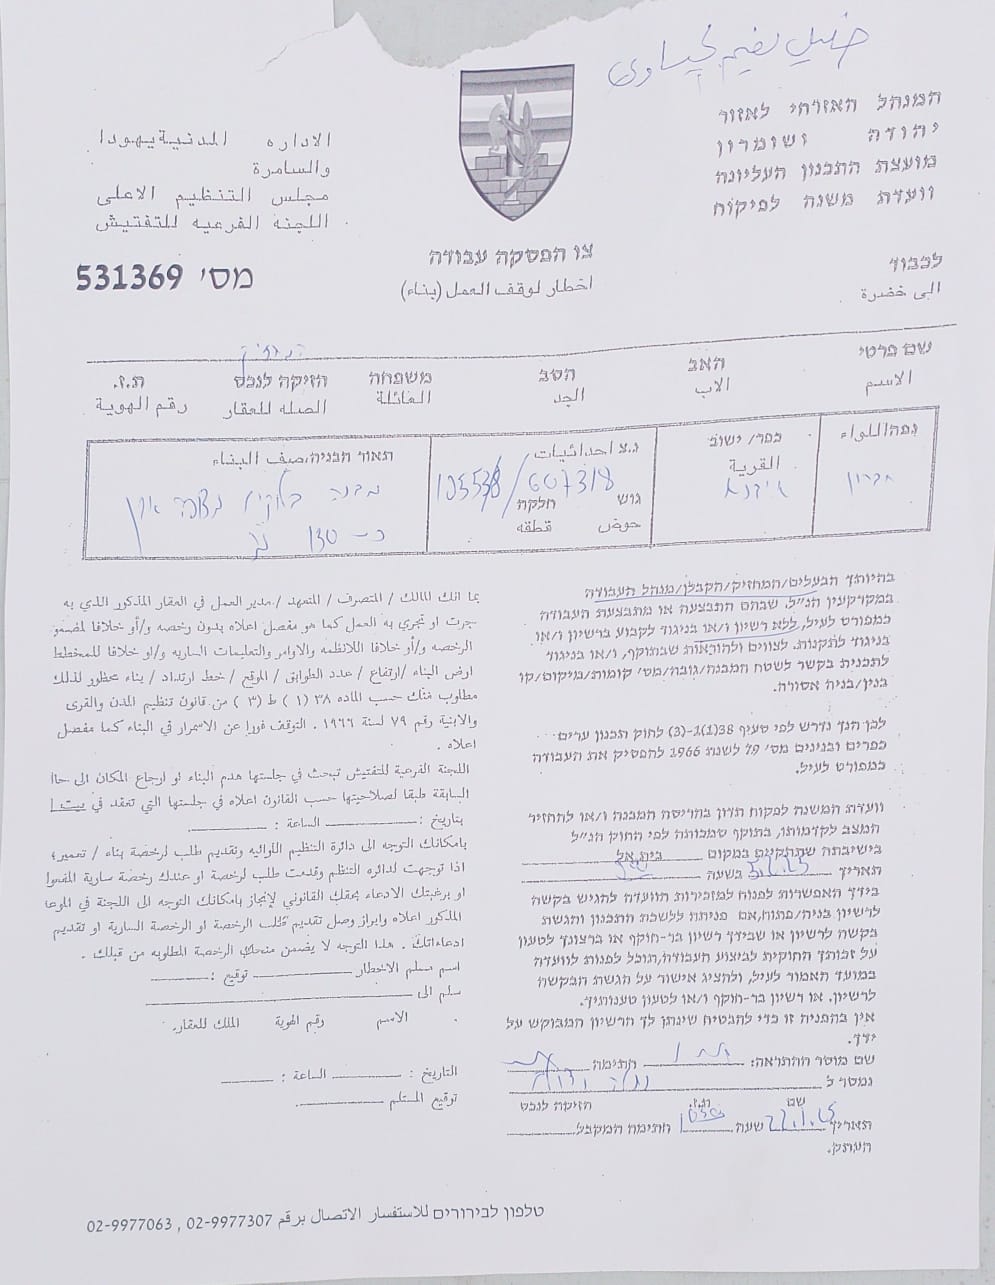 خليل نعيم
המנהל האזרחי לאזור
יהודה ושומרון
מועצת התכנון העליונה
וועדת משנה לפיקוח
الاداره المدنية يهودا
والسامرة
مجلس التنظيم الاعلى
اللجنه الفرعيه للتفتيش
צו הפסקה עבודה
اخطار لوقف العمل (بناء)
מס' 531369
לכבוד
الى حضرة
שם פרטי האב הסב משפחה חזיקה לנכס ת.ז.
الاسم الاب الجد العائلة الصله للعقار رقم الهوية
נפה اللواء
חברון
כפר/ ישוב
القرية
אידנא
נ.צ احداثيات
607318
גוש חלקה
حوض قطعه
תאור הבניה, صيف البناء
מבנה בלוקים
כ- 130
בהיותך הבעלים/המחזיק/הקבלן/מנהל העבודה
במקרקעין הנ"ל, שבהם התבצעה או מתבצעת העבודה
כמפורט לעיל, ללא רשיון ו/או בניגוד לקבוע ברשיון ו/או
בניגוד לתקנות. לצווים ולהוראות שבתוקף, ו/או בניגוד
לתכנית בקשר לשטח המבנה/גובה/מס' קומות/מיקום/קו
בנין/בניה אסורה.
לכן הנך נדרש לפי סעיף 38(1)ג-(3) לחוק תכנון ערים
כפרים ובנינים מס' 79 לשנת 1966 להפסיק את העבודה
כמפורט לעיל.
וועדת המשנה לפקוח תדון בהריסת המבנה ו/או להחזיר
המצב לקדמותו, בתוקף סמכותה לפי החוק הנ"ל
בישיבתה שתתקיים במקום בית אל
תאריך בשעה
בידך האפשרות לפנות למזכירות הוועדה להגיש בקשה
לרשיון בניה/פתוח, אם פניתה ללשכת התכנון והגשת
בקשה לרשיון או שבידך רשיון בר-תוקף או ברצונך לטעון
על זכותך החוקית לביצוע העבודה, תוכל לפנות לוועדה
במועד האמור לעיל, ולהציג אישור על הגשת הבקשה
לרשיון. או רשיון בר-תוקף ו/או לטעון טענותיך.
אין בהפניה זו כדי להבטיח שינתן לך הרשיון המבוקש על
ידך.
שם מוסר ההתראה: חתימה
נמסר ל
שם ת.ז. חזיקה לנכס
תאריך 22.1.25 שעה חתימה המקבל
העתק.
بما انك المالك / المتصرف / المتعهد / مدير العمل في العقار المذكور الذي به
جرت او تجري به العمل كما هو مفصل اعلاه بدون رخصه و/أو خلافا لمضمو
الرخصه و/أو خلافا للانظمه والاوامر والتعليمات الساريه و/او خلافا للمخطط
ارض البناء / ارتفاع / عدد الطوابق / الموقع / خط ارتداد / بناء محظور لذلك
مطلوب منك حسب الماده ٣٨ (١) ط (٣) من قانون تنظيم المدن والقرى
والابنية رقم ٧٩ لسنة ١٩٦٦ . التوقف فورا عن الاسمرار في البناء كما مفصل
اعلاه .
اللجنة الفرعية للتفتيش تبحث في جلستها هدم البناء او ارجاع المكان الى حا
السابقة طبقا لصلاحيتها حسب القانون اعلاه في جلستها التي تعقد في بيت ا
بتاريخ : الساعة :
بامكانك التوجه الى دائرة التنظيم اللوائيه وتقديم طلب لرخصة بناء / تعمير؛
اذا توجهت لدائره التنظم وقدمت طلب لرخصة او عندك رخصة سارية المفعوا
او برغبتك الادعاء بحقك القانوني لإنجاز بامكانك التوجه الى اللجنة في الموعا
المذكور اعلاه وابراز وصل تقديم طلب الرخصة او الرخصة السارية او تقديم
ادعاءاتك . هذا التوجه لا يضمن منحك الرخصة المطلوبه من قبلك .
اسم مسلم الاخطار توقيع :
سلم الى
الاسم رقم الهوية الملك للعقار.
التاريخ : الساعة :
توقيع المستلم
טלפון לבירורים للاستفسار الاتصال برقم 02-9977307 , 02-9977063